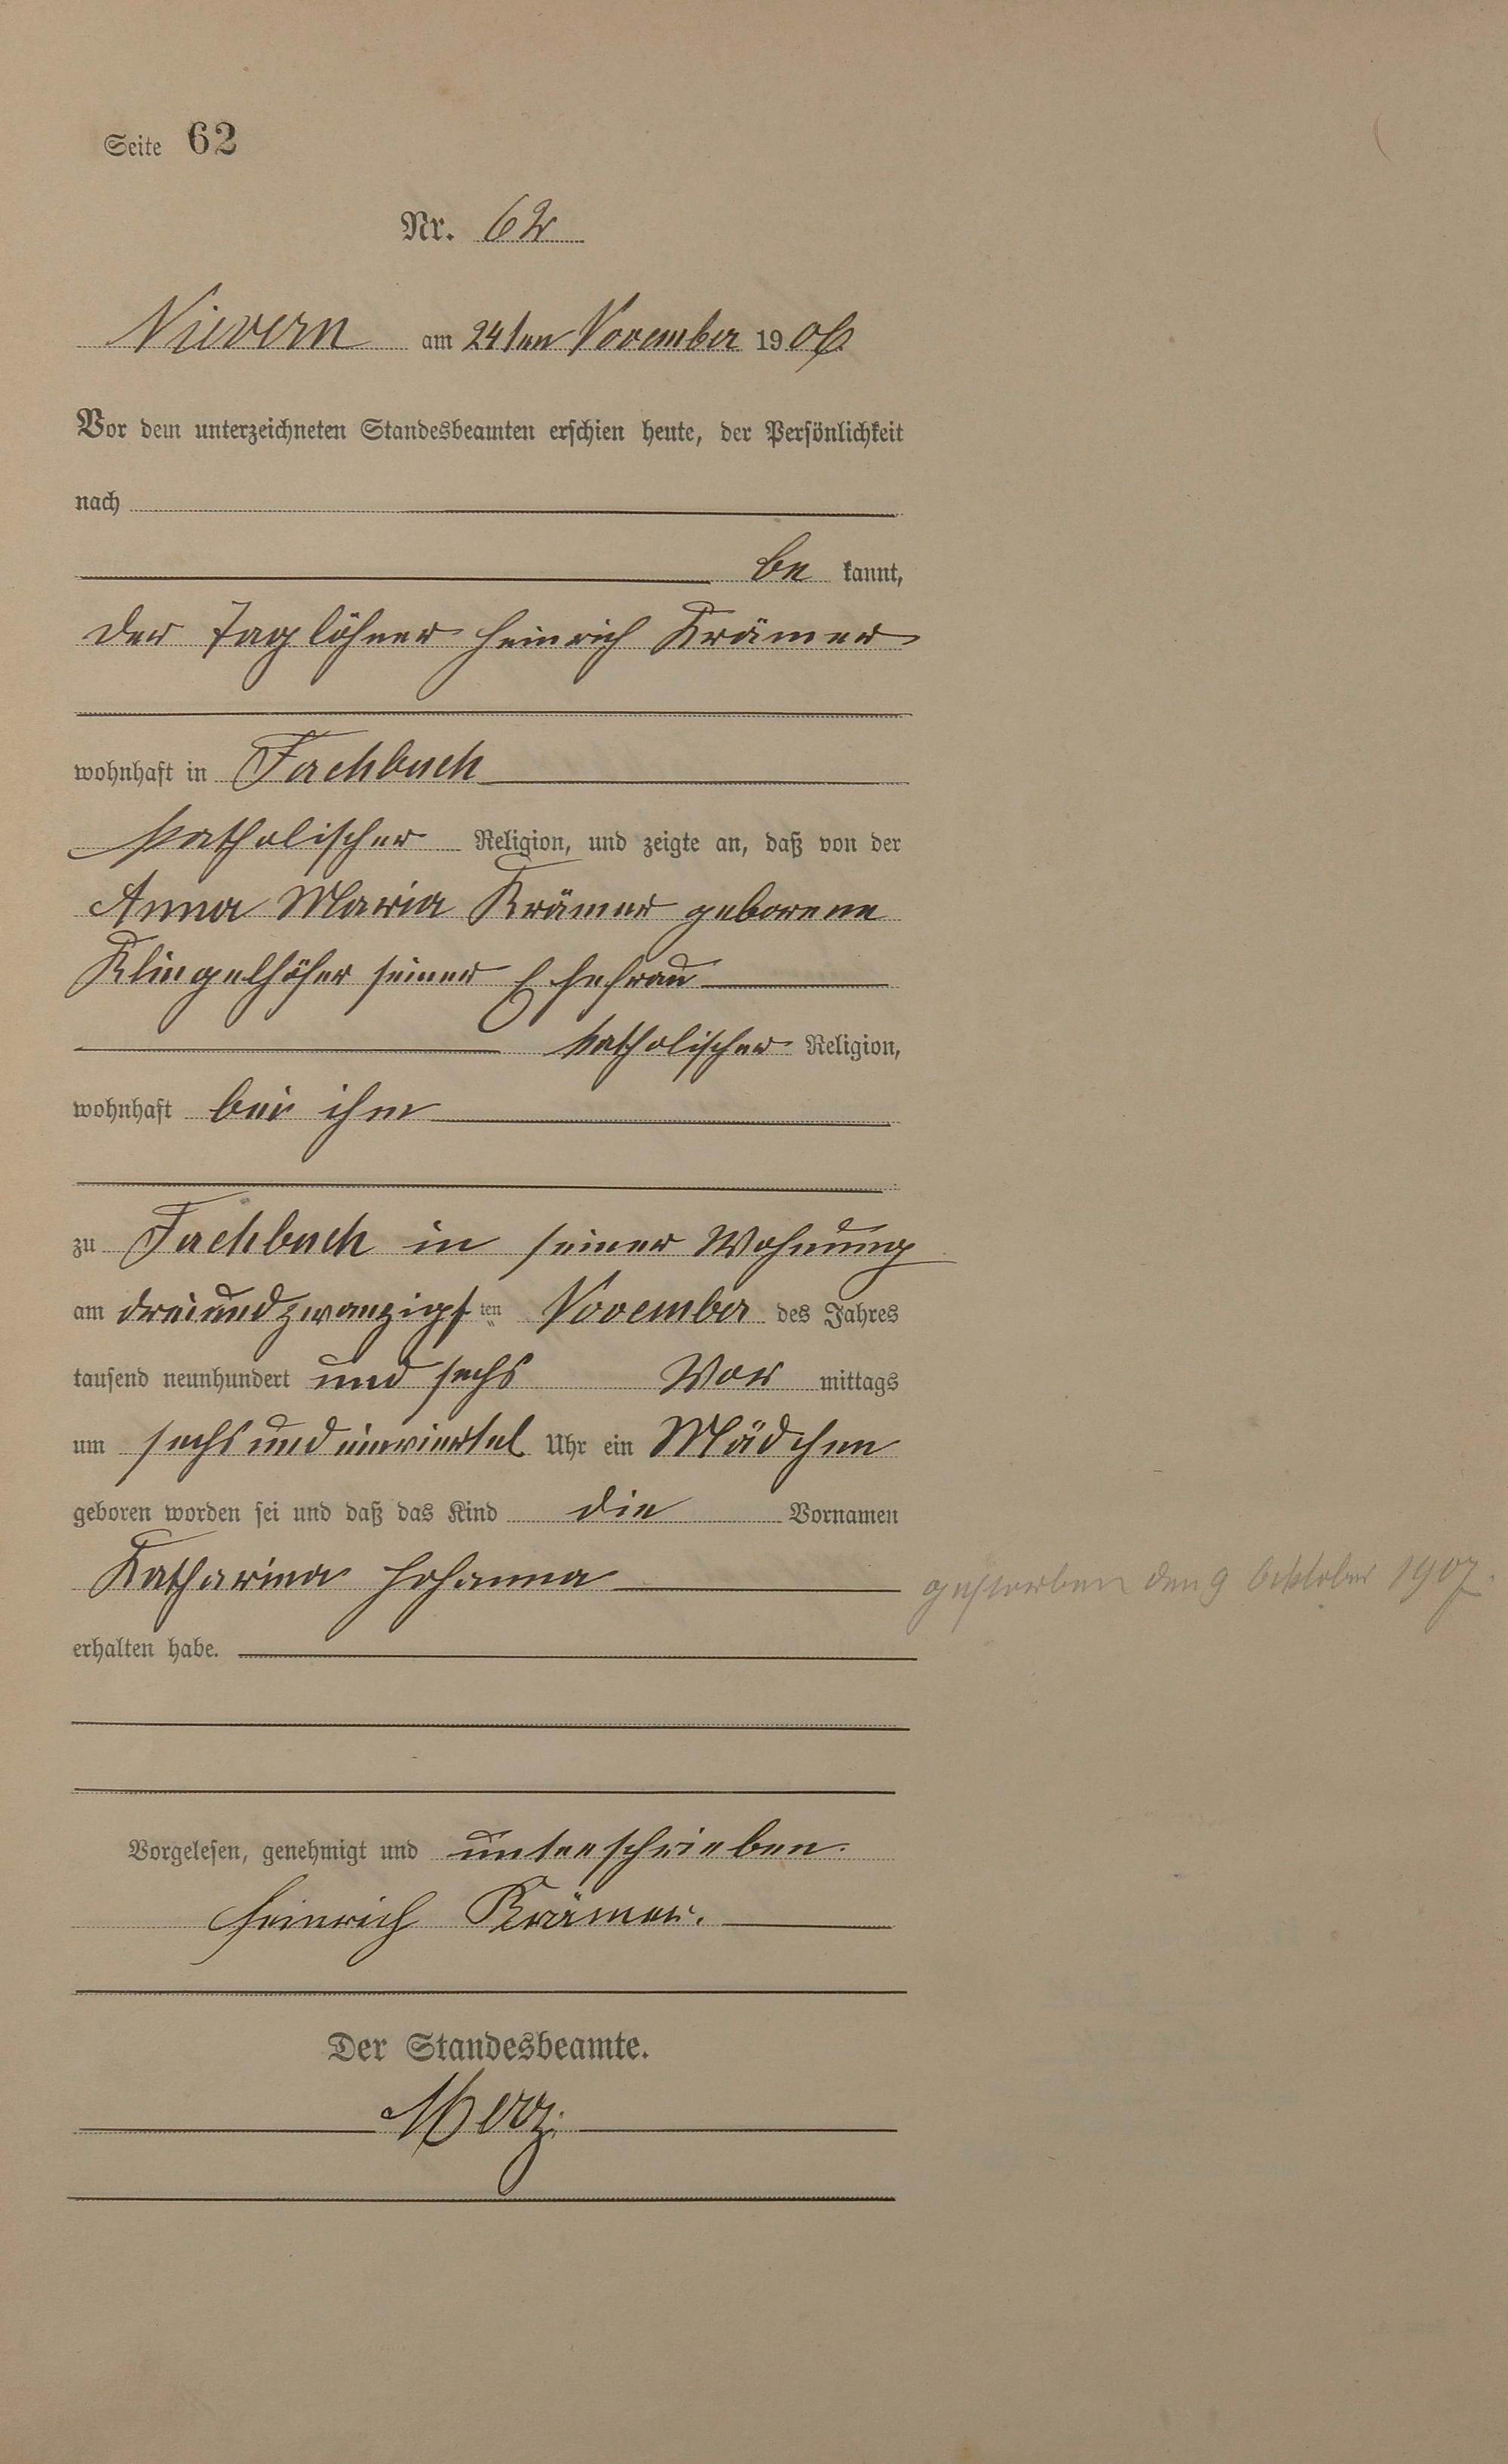 Seite 62
Nr. 62
Nievern am 24ten November 1906.
Vor dem unterzeichneten Standesbeamten erschien heute, der Persönlichkeit
nach
be kannt,
der Taglöhner Heinrich Krämer
wohnhaft in Fachbach
katholischer Religion, und zeigte an, daß von der
Anna Maria Krämer geborene
Klingelhöfer seiner Ehefrau
katholischer Religion,
wohnhaft bei ihm
zu Fachbach in seiner Wohnung
am dreiundzwanzigsten November des Jahres
tausend neunhundert und sechs Vor mittags
um sechs und einviertel Uhr ein Mädchen
geboren worden sei und daß das Kind die Vornamen
Katharina Johanna
gestorben den 9 Oktober 1907.
erhalten habe.
Vorgelesen, genehmigt und unterschrieben.
Heinrich Krämer.
Der Standesbeamte.
Merz.